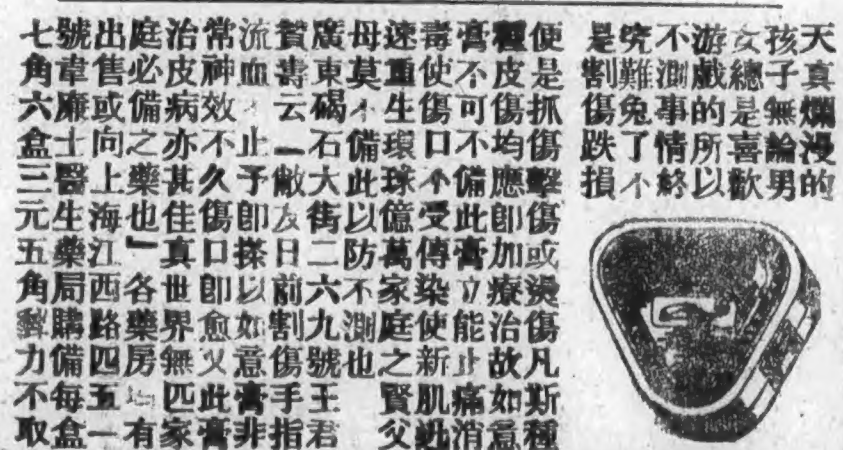 天真爛漫的
孩子無論男
女總是喜歡
游戲的所以
不測事情終
究難免了不
是割傷跌損
便是抓傷擊傷或燙傷凡斯種
種皮傷均應卽加療治故如意
膏不可不備此膏立能止痛消
毒使傷口不受傳染使新肌迅
速重生環球億萬家庭之賢父
母莫不備此以防不測也
廣東碣石大街二六九號王君
贊壽云「敝友日前割傷手指
流血不止予卽搽以如意膏非
常神效不久傷口卽愈又此膏
治皮病亦甚佳真世界無匹家
庭必備之藥也」各藥房有
出售或向上海江西路四五一
號韋廉士醫生藥局購備每盒
七角六盒三元五角郵力不取